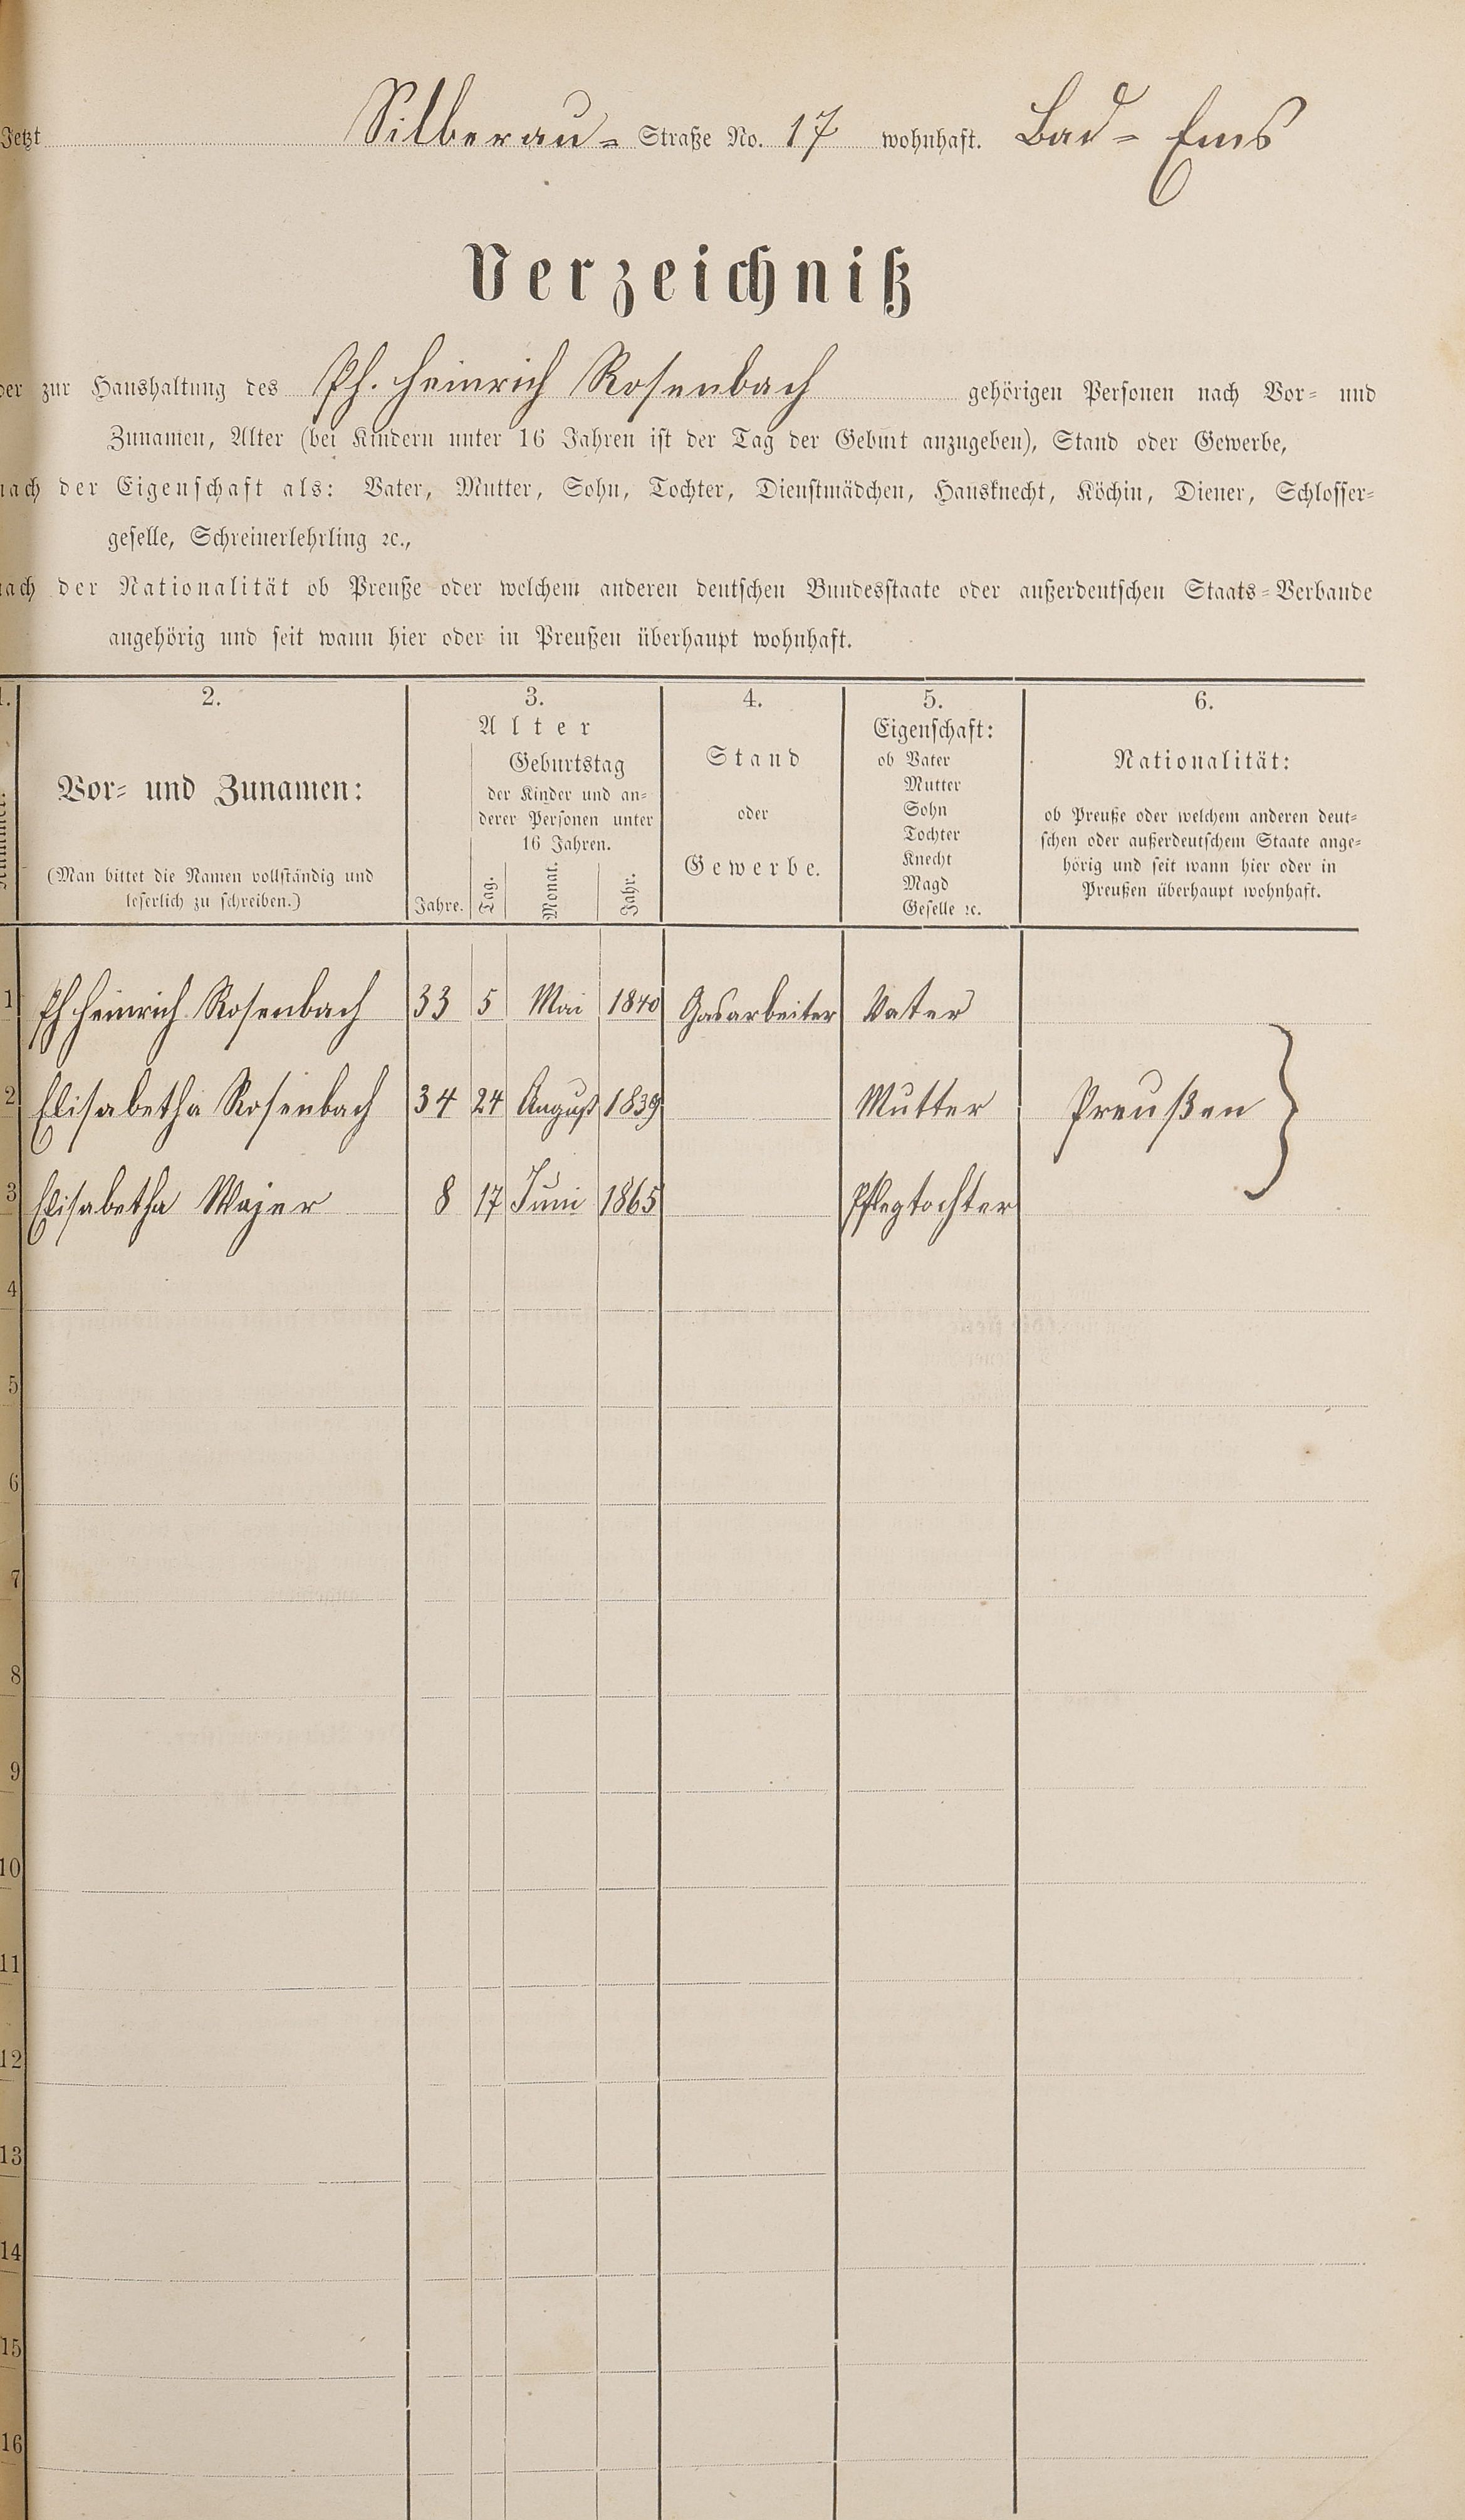 Jetzt Silberau- Straße No. 17 wohnhaft. Bad- Ems
Verzeichniß
der zur Haushaltung des Ph. Heinrich Rosenbach gehörigen Personen nach Vor- und
Zunamen, Alter (bei Kindern unter 16 Jahren ist der Tag der Geburt anzugeben), Stand oder Gewerbe,
nach der Eigenschaft als: Vater, Mutter, Sohn, Tochter, Dienstmädchen, Hausknecht, Köchin, Diener, Schlosser-
geselle, Schreinerlehrling ꝛc.,
nach der Nationalität ob Preuße oder welchem anderen deutschen Bundesstaate oder außerdeutschen Staats-Verbande
angehörig und seit wann hier oder in Preußen überhaupt wohnhaft.
1.
Nummer.
2.
Vor- und Zunamen:
(Man bittet die Namen vollständig und
leserlich zu schreiben.)
3.
Alter
Jahre.
Geburtstag
der Kinder und an-
derer Personen unter
16 Jahren.
Tag.
Monat.
Jahr.
4.
Stand
oder
Gewerbe.
5.
Eigenschaft:
ob Vater
Mutter
Sohn
Tochter
Knecht
Magd
Geselle ꝛc.
6.
Nationalität:
ob Preuße oder welchem anderen deut-
schen oder außerdeutschem Staate ange-
hörig und seit wann hier oder in
Preußen überhaupt wohnhaft.
1 Ph Heinrich Rosenbach 33 5 Mai 1840 Gasarbeiter Vater
2 Elisabetha Rosenbach 34 24 August 1839 Mutter Preußen
3 Elisabetha Majer 8 17 Juni 1865 Pflegtochter
4
5
6
7
8
9
10
11
12
13
14
15
16